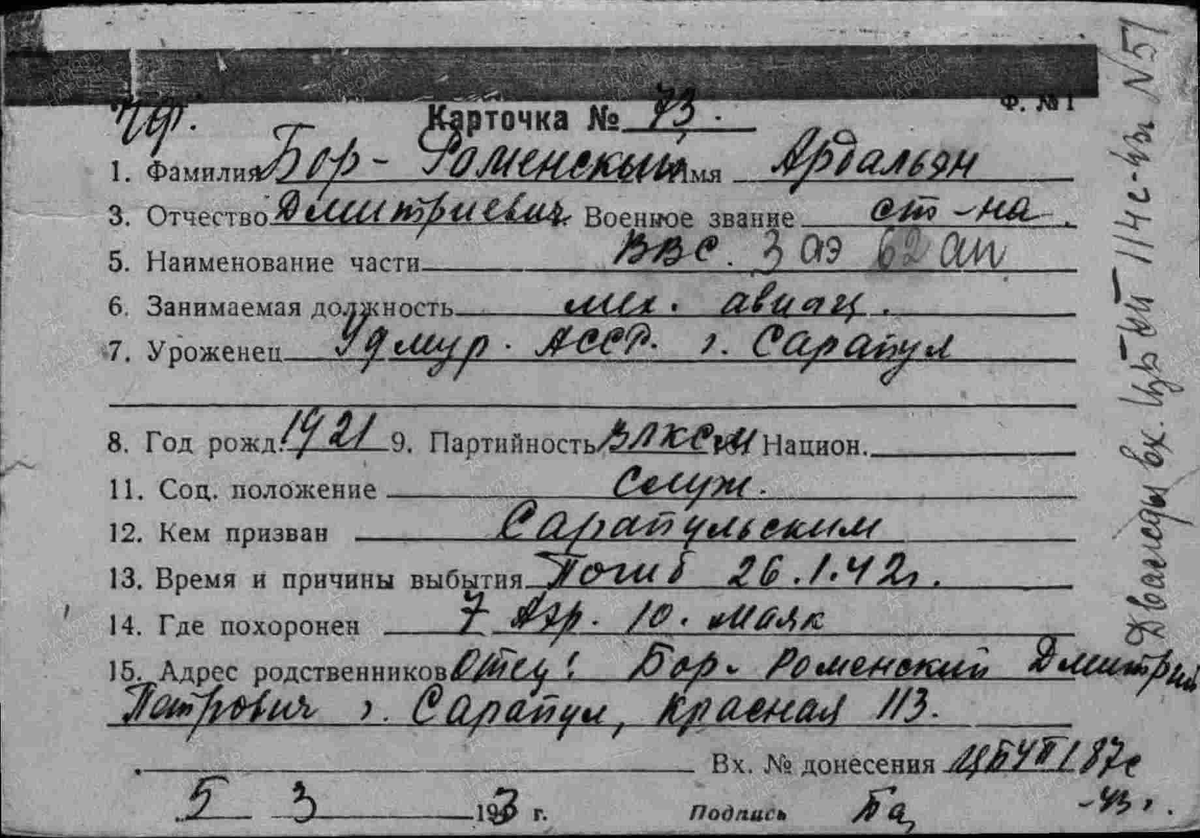 Ф. №1
Карточка № 73.
1. Фамилия Бор-Роменский Имя Ардальян
3. Отчество Дмитриевич Военное звание ст-на
5. Наименование части ВВС. 3 аэ 62 ап
6. Занимаемая должность мех. авиац.
7. Уроженец Удмур. АССР. г. Сарапул
8. Год рожд. 1921 9. Партийность ВЛКСМ Национ.
11. Соц. положение служ.
12. Кем призван Сарапульским
13. Время и причины выбытия Погиб 26.1.42г.
14. Где похоронен 7 Аэр. 10. маяк
15. Адрес родственников Отец: Бор-Роменский Дмитрий
Петрович г. Сарапул, Красная 113.
Вх. № донесения 187с
-43 г.
5 3 1943 г. Подпись
Дважды вх. 114с-43г №51